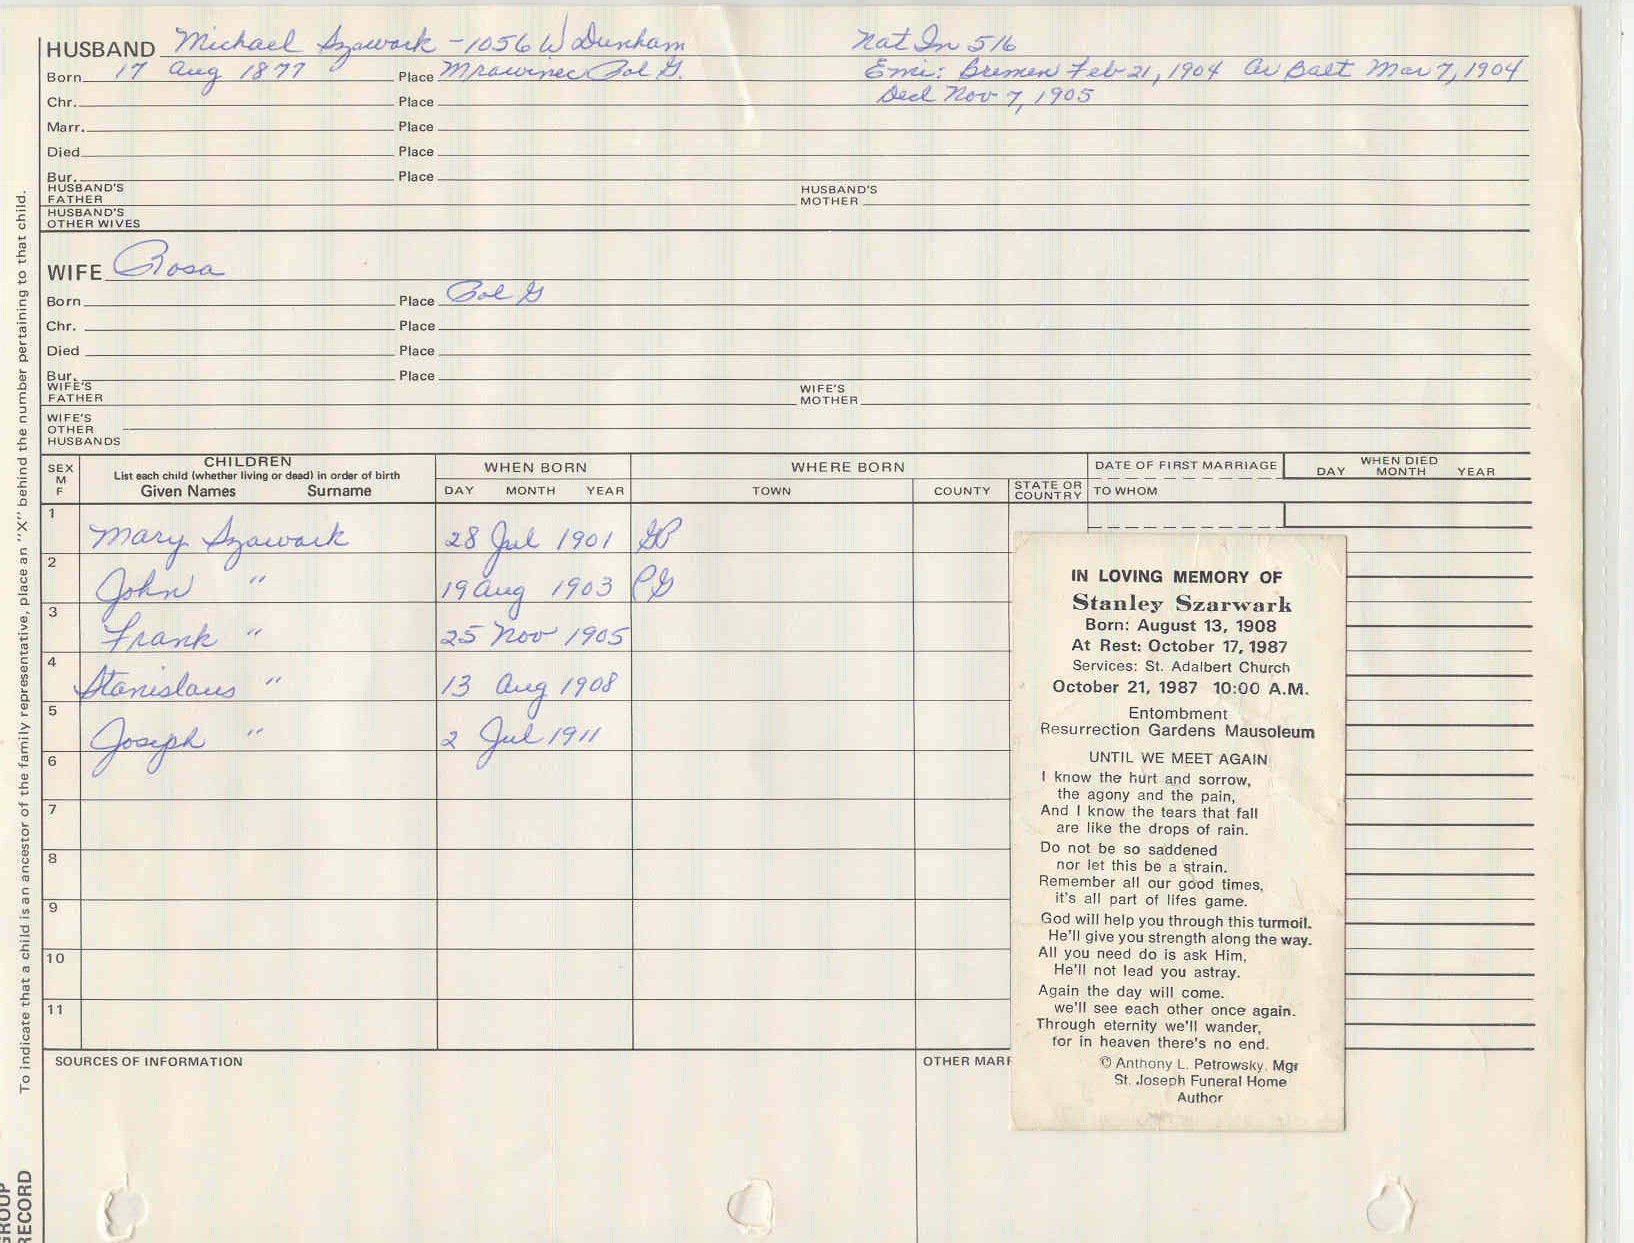 HUSBAND Michael Szawark - 1056 W Dunham Nat In 516
Born 17 Aug 1877 Place Mrowinec Pol G. Emi: Bremen Feb 21, 1904 Ar Balt Mar 7, 1904
Chr. Place Decl Nov 7, 1905
Marr. Place
Died Place
Bur. Place
HUSBAND'S FATHER HUSBAND'S MOTHER
HUSBAND'S OTHER WIVES
WIFE Rosa
Born Place Pol G
Chr. Place
Died Place
Bur. Place
WIFE'S FATHER WIFE'S MOTHER
WIFE'S OTHER HUSBANDS
SEX M F CHILDREN WHEN BORN WHERE BORN DATE OF FIRST MARRIAGE WHEN DIED
List each child (whether living or dead) in order of birth DAY MONTH YEAR
Given Names Surname DAY MONTH YEAR TOWN COUNTY STATE OR COUNTRY TO WHOM
1 Mary Szawark 28 Jul 1901 GP
2 John " 19 Aug 1903 PG
3 Frank " 25 Nov 1905
4 Stanislaus " 13 Aug 1908
5 Joseph " 2 Jul 1911
6
7
8
9
10
11
SOURCES OF INFORMATION OTHER MARR
IN LOVING MEMORY OF
Stanley Szarwark
Born: August 13, 1908
At Rest: October 17, 1987
Services: St. Adalbert Church
October 21, 1987 10:00 A.M.
Entombment
Resurrection Gardens Mausoleum
UNTIL WE MEET AGAIN
I know the hurt and sorrow,
the agony and the pain,
And I know the tears that fall
are like the drops of rain.
Do not be so saddened
nor let this be a strain.
Remember all our good times,
it's all part of lifes game.
God will help you through this turmoil.
He'll give you strength along the way.
All you need do is ask Him,
He'll not lead you astray.
Again the day will come.
we'll see each other once again.
Through eternity we'll wander,
for in heaven there's no end.
© Anthony L. Petrowsky, Mgr
St. Joseph Funeral Home
Author
To indicate that a child is an ancestor of the family representative, place an "X" behind the number pertaining to that child.
GROUP
RECORD